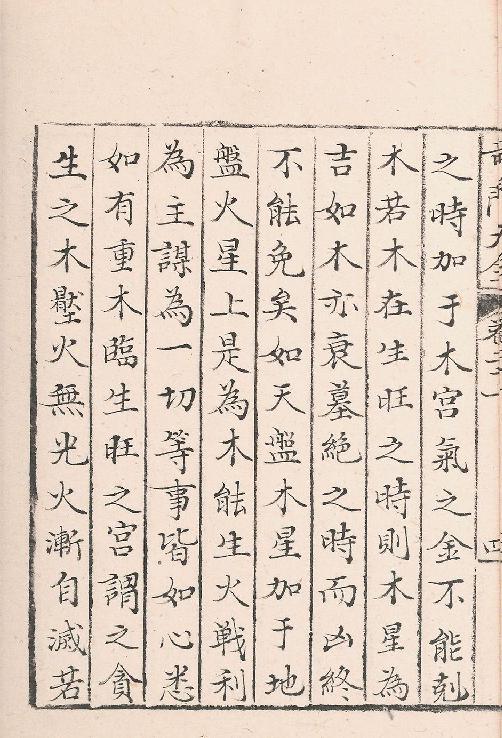 之時加于木宮氣之金不能剋
木若木在生旺之時則木星為
吉如木亦衰墓絶之時而凶終
不能免矣如天盤木星加于地
盤火星上是為木能生火戦利
為主謀為一切等事皆如心悉
如有重木臨生旺之宮謂之貪
生之木壓火無光火漸自滅若